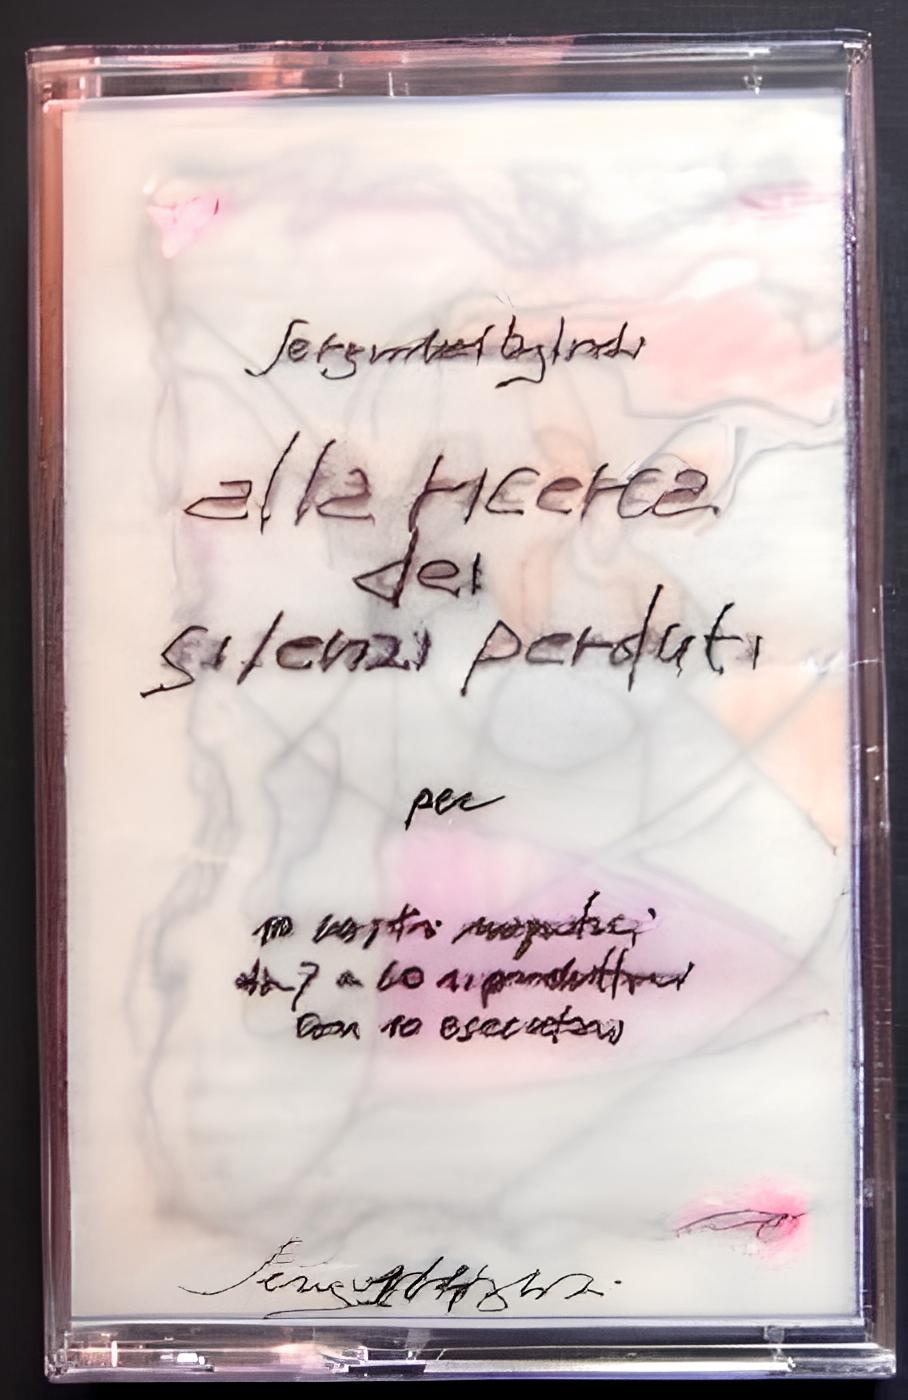 alla ricerca
dei
silenzi perduti
per
10 nastri magnetici
da 7 a 60 riproduttori
con 10 esecutori